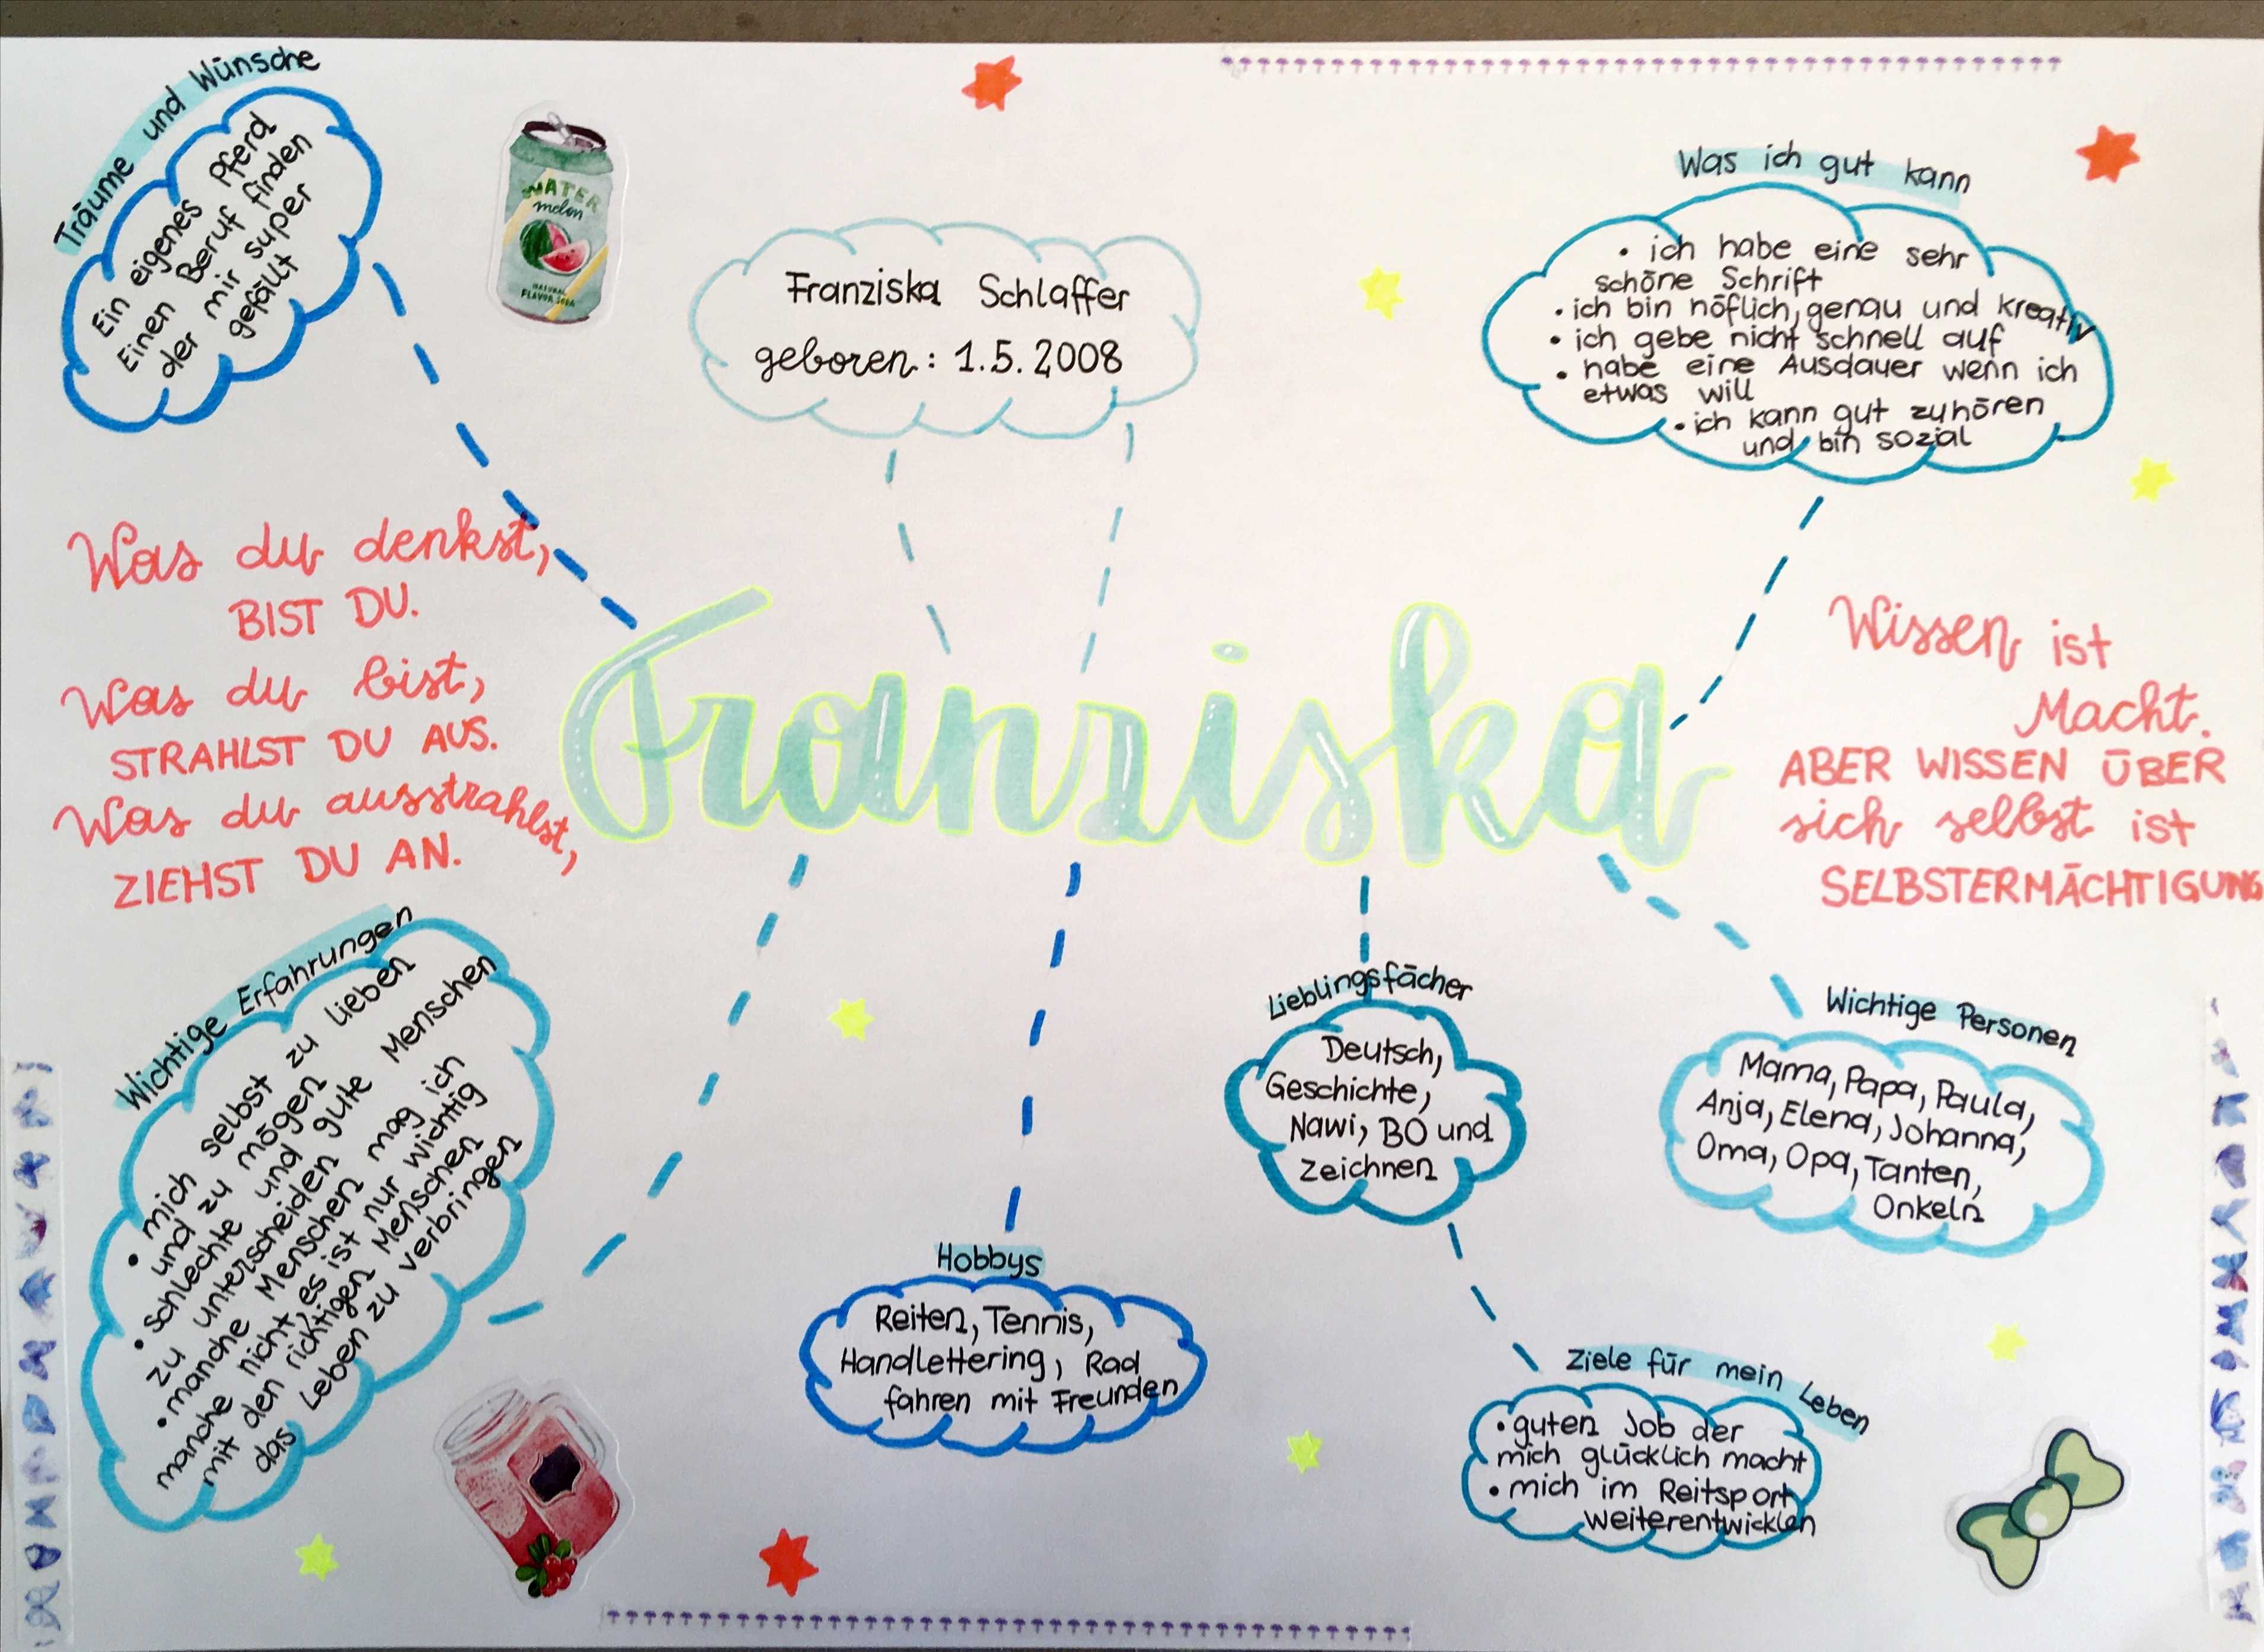 Träume und Wünsche
Ein eigenes Pferd
Einen Beruf finden
der mir super
gefällt
WATER
melon
NATURAL
FLAVOR SODA
Franziska Schlaffer
geboren: 1.5.2008
Was ich gut kann
• ich habe eine sehr
schöne Schrift
• ich bin höflich, genau und kreativ
• ich gebe nicht schnell auf
• habe eine Ausdauer wenn ich
etwas will
• ich kann gut zuhören
und bin sozial
Was du denkst,
BIST DU.
Was du bist,
STRAHLST DU AUS.
Was du ausstrahlst,
ZIEHST DU AN.
Franziska
Wissen ist
Macht.
ABER WISSEN ÜBER
sich selbst ist
SELBSTERMÄCHTIGUNG
Wichtige Erfahrungen
• mich selbst zu lieben
und zu mögen
• schlechte und gute Menschen
zu unterscheiden
• manche Menschen mag ich
manche nicht, es ist nur wichtig
mit den richtigen Menschen
das Leben zu verbringen
Hobbys
Reiten, Tennis,
Handlettering, Rad
fahren mit Freunden
Lieblingsfächer
Deutsch,
Geschichte,
Nawi, BO und
zeichnen
Wichtige Personen
Mama, Papa, Paula,
Anja, Elena, Johanna,
Oma, Opa, Tanten,
Onkeln
Ziele für mein Leben
• guten Job der
mich glücklich macht
• mich im Reitsport
weiterentwicklen